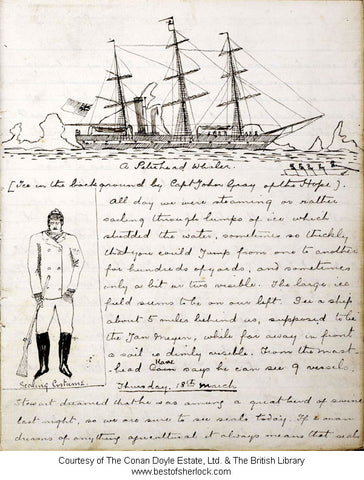 A Peterhead Whaler.
[Ice in the background by Capt John Gray of the Hope].
All day we were steaming or rather
sailing through lumps of ice which
studded the water, sometimes so thickly
that you could jump from one to another
for hundreds of yards, and sometimes
only a bit or two visible. The large ice
field seems to be on our left. See a ship
about 5 miles behind us, supposed to be
the Jan Meyen, while far away in front
a sail is dimly visible. From the mast
head Colin says he can see 9 vessels.
Sealing Costume.
Thursday, 18th March
Stewart dreamed that he was among a great herd of swine
last night, so we are sure to see seals today. If a man
dreams of anything agricultural it always means that seals
Courtesy of The Conan Doyle Estate, Ltd. & The British Library
www.bestofsherlock.com